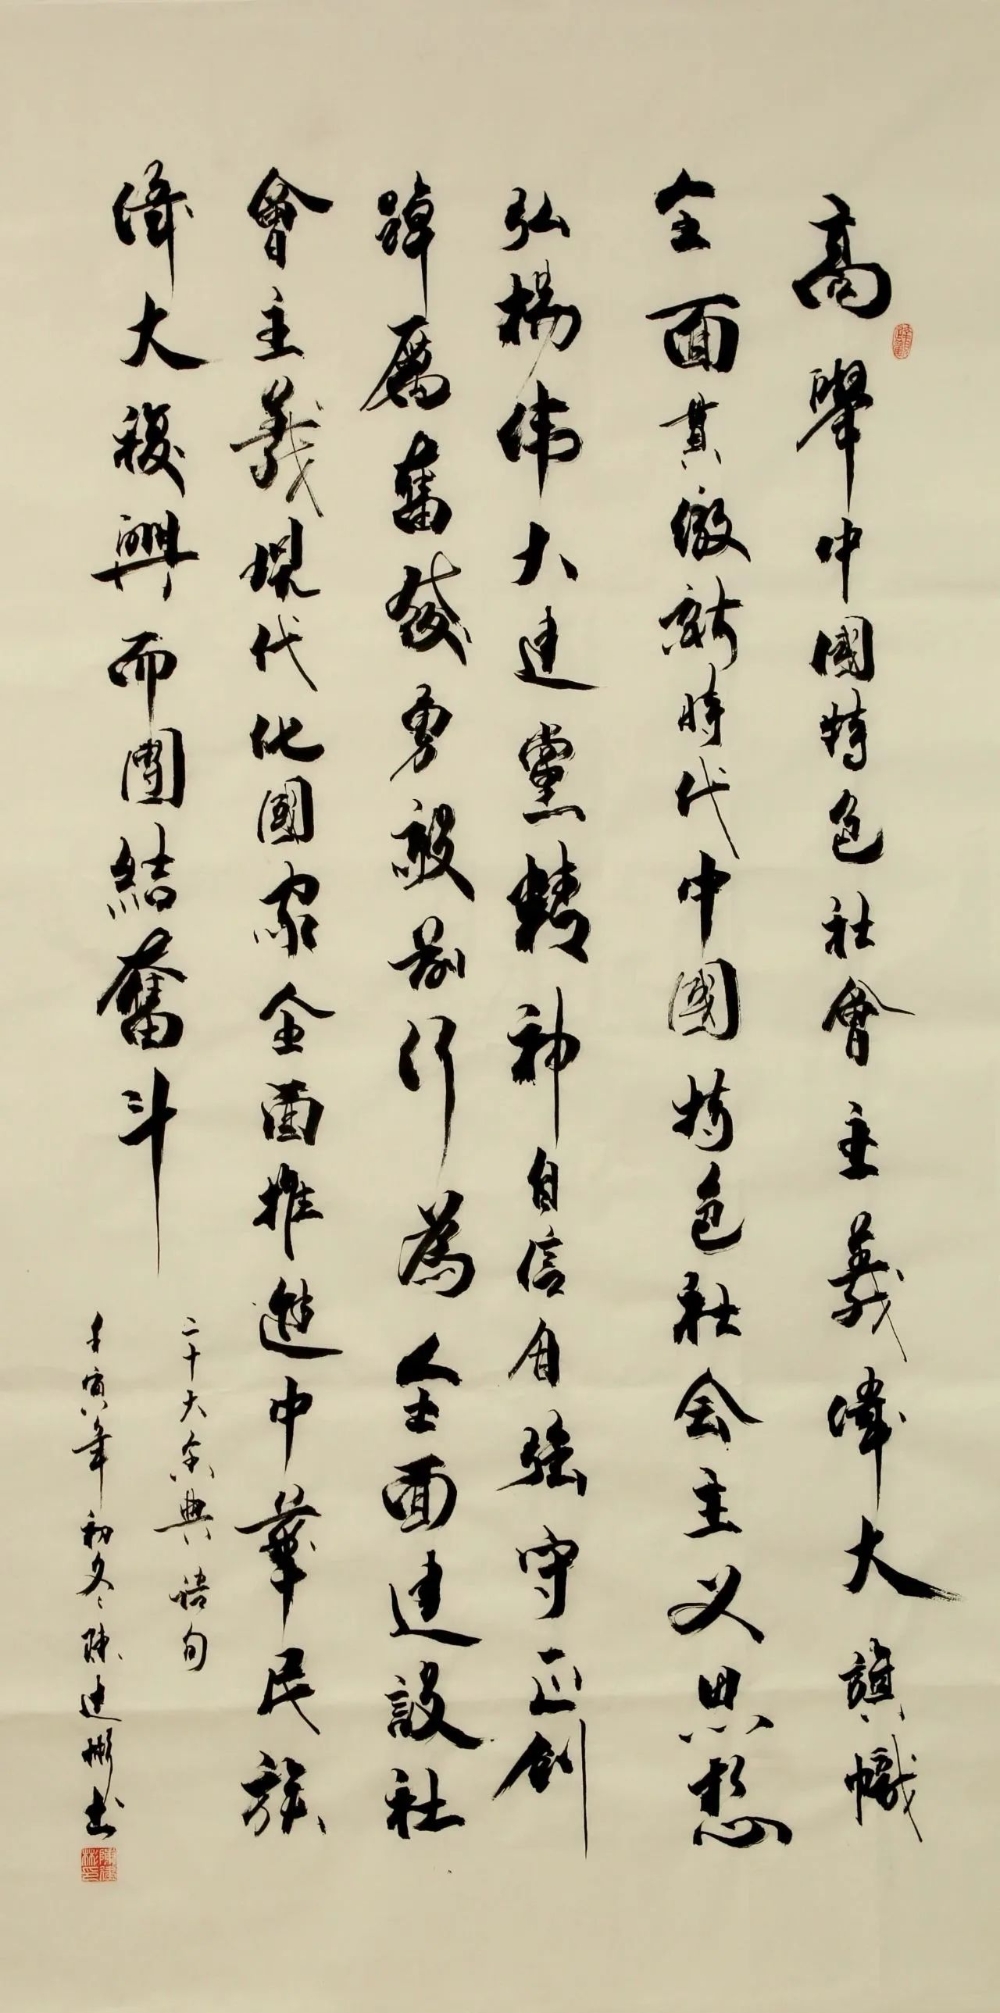 高舉中國特色社會主義偉大旗幟
全面貫徹新時代中國特色社会主义思想
弘揚伟大建黨精神自信自強守正創
踔厲奮發勇毅前行為全面建設社
會主義現代化國家全面推進中華民族
偉大複興而團結奮斗
二十大金典语句
壬寅年初冬陳建彬书